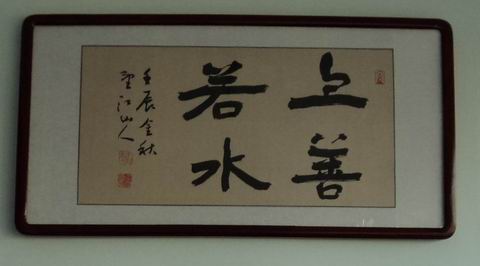 上善
若水
壬辰金秋
望江山人